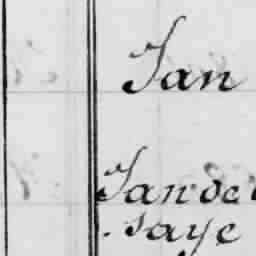 Jan
Jande
saye